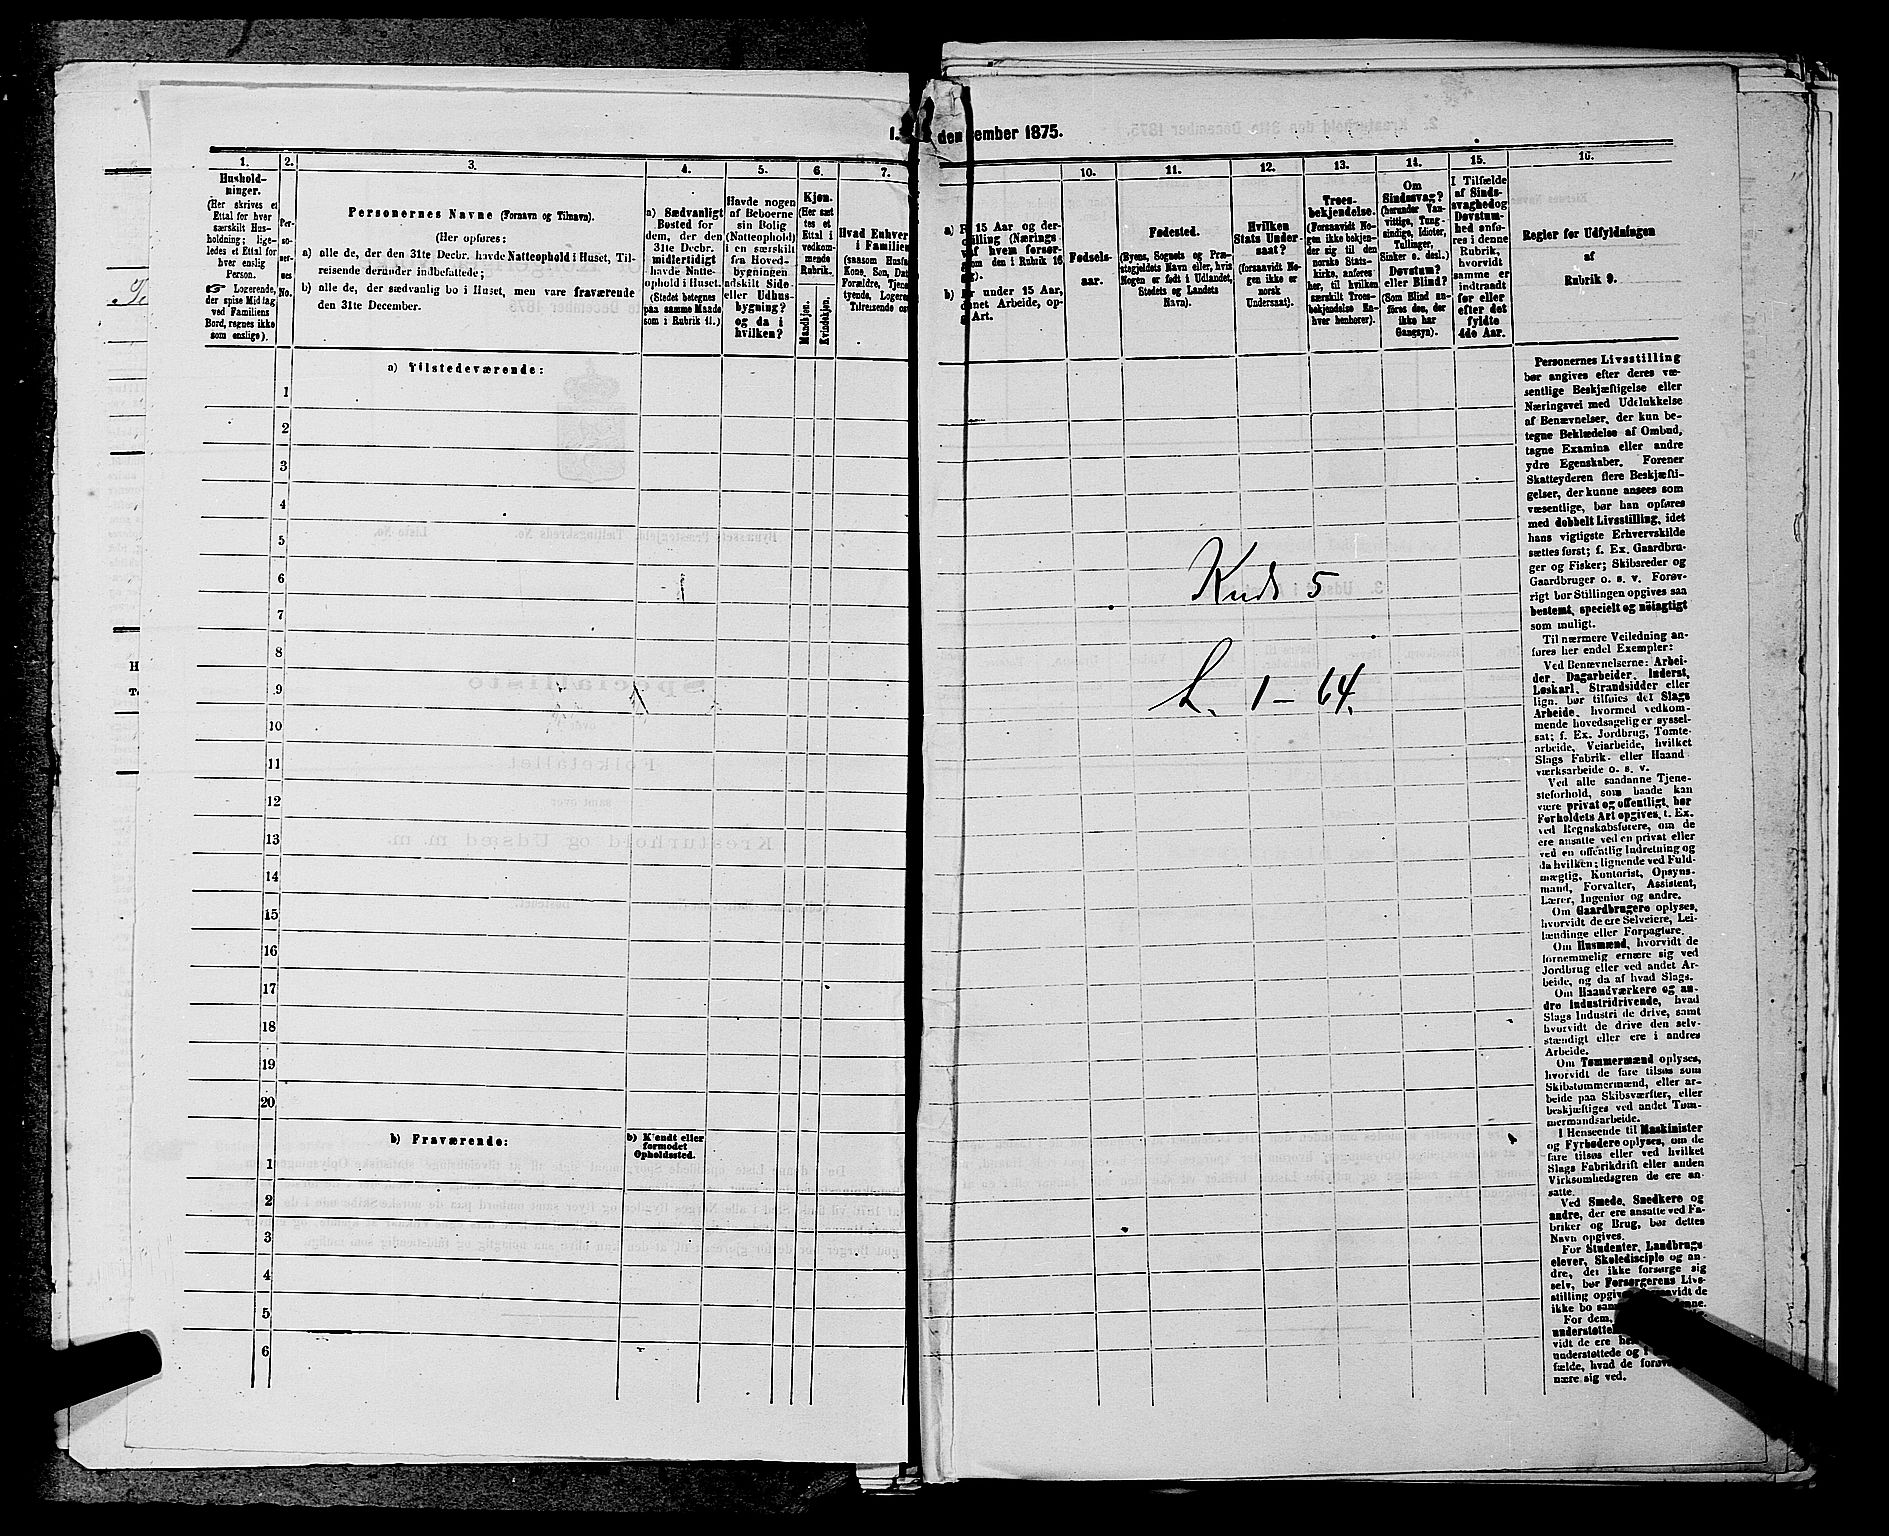 1.
den
ember 1875.
1.
Hushold-
ninger.
(Her skrives et
Ettal for hver
særskilt Hus-
holdning; lige-
ledes et Ettal for
hver enslig
Person.
☞ Logerende,
der spise Middag
ved Familiens
Bord, regnes ikke
som enslige).
2.
Per-
so-
ner-
nes
No.
3.
Personernes Navne (Fornavn og Tilnavn).
(Her opføres:
a) alle de, der den 31te Decbr. havde Natteophold i Huset, Til-
reisende derunder indbefattede;
b) alle de, der sædvanlig bo i Huset, men vare fraværende
den 31te December.
4.
a) Sædvanligt
Bosted for
dem, der den
31te Decbr.
midlertidigt
havde Natte-
ophold i Huset.
(Stedet betegnes
paa samme Maade
som i Rubrik 11.)
5.
Havde nogen
af Beboerne
sin Bolig
(Natteophold)
i en særskilt
fra Hoved-
bygningen
adskilt Side-
eller Udhus-
bygning?
og da i
hvilken?
6.
Kjøn.
(Her sæt
tes et
Ettal i
vedkom-
mende
Rubrik.
Mandkjøn.
Kvindekjøn.
7.
Hvad Enhver
i Familien
(saasom Husfa
Kone, Søn, Dat
Forældre, Tjene
tyende, Logere
Tilreisende os
15 Aar og der-
illing (Nærings
af hvem forsør-
som den i Rubrik 16
g).
b)
under 15 Aar,
net Arbeide, op-
Art.
10.
Fødsels-
aar.
11.
Fødested.
(Byens, Sognets og Præ-
stegjeldets Navn eller, hvis
Nogen er født i Udlandet,
Stedets og Landets
Navn).
12.
Hvilken
Stats Under-
saat?
(forsaavidt No-
gen ikke er
norsk
Undersaat).
13.
Troes-
bekjendelse.
(Forsaavidt No-
gen ikke bekjen-
der sig til den
norske Stats-
kirke, anføres
her, til hvilken
særskilt Troes-
bekjendelse En-
hver henhører).
14.
Om
Sindssvag?
(herunder Van-
vittige, Tung-
sindige, Idioter,
Tullinger,
Sinker o. desl.)
Døvstum?
eller Blind?
(Som Blind an-
føres den, der
ikke har
Gangsyn).
15.
I Tilfælde
af Sinds-
svaghed og
Døvstum-
hed anfø-
res i denne
Rubrik,
hvorvidt
samme er
indtraadt
før eller
efter det
fyldte
4de Aar.
16.
Regler for Udfyldningen
af
Rubrik 9.
a) Tilstedeværende:
1
2
3
4
5
6
7
8
9
10
11
12
13
14
15
16
17
18
19
20
b) Fraværende:
b) Kjendt eller
formodet
Opholdssted.
1
2
3
4
5
6
Kreds 5
L. 1 – 64.
Personernes Livsstilling
bør angives efter deres væ-
sentlige Beskjæftigelse eller
Næringsvei med Udelukkelse
af Benævnelser, der kun be-
tegne Beklædelse af Ombud,
tagne Examina eller andre
ydre Egenskaber. Forener
Skatteyderen flere Beskjæfti-
gelser, der kunne ansees som
væsentlige, bør han opføres
med dobbelt Livsstilling, idet
hans vigtigste Erhvervskilde
sættes først; f. Ex. Gaardbru-
ger og Fisker; Skibsreder og
Gaardbruger o. s. v. Forøv-
rigt bør Stillingen opgives saa
bestemt, specielt og nøiagtigt
som muligt.
Til nærmere Veiledning an-
føres her endel Exempler:
Ved Benævnelserne: Arbei-
der, Dagarbeider, Inderst,
Løskarl, Strandsidder eller
lign. bør tilføies det Slags
Arbeide, hvormed vedkom-
mende hovedsagelig er syssel-
sat; f. Ex. Jordbrug, Tomte-
arbeide, Veiarbeide, hvilket
Slags Fabrik- eller Haand
værksarbeide o. s. v.
Ved alle saadanne Tjene-
steforhold, som baade kan
være privat og offentligt, bør
Forholdets Art opgives, t. Ex.
ved Regnskabsførere, om de
ere ansatte ved en privat eller
ved en offentlig Indretning og
da hvilken; lignende ved Fuld-
mægtig, Kontorist, Opsyns-
mand, Forvalter, Assistent,
Lærer, Ingeniør og andre.
Om Gaardbrugere oplyses,
hvorvidt de ere Selveiere, Lei-
lændinge eller Forpagtere.
Om Husmænd, hvorvidt de
fornemmelig ernære sig ved
Jordbrug eller ved andet Ar-
beide, og da af hvad Slags.
Om Haandværkere og an-
dre Industridrivende, hvad
Slags Industri de drive, samt
hvorvidt de drive den selv-
stændigt eller ere i andres
Arbeide.
Om Tømmermænd oplyses,
hvorvidt de fare tilsøs som
Skibstømmermænd, eller ar-
beide paa Skibsværfter, eller
beskjæftiges ved andet Tøm-
mermandsarbeide.
I Henseende til Maskinister
og Fyrbødere oplyses, om de
fare tilsøs eller ved hvilket
Slags Fabrikdrift eller anden
Virksomhedsgren de ere an-
satte.
Ved Smede, Snedkere og
andre, der ere ansatte ved Fa-
briker og Brug, bør dettes
Navn opgives.
For Studenter, Landbrugs
elever, Skoledisciple og an-
dre, der ikke forsørge sig
selv, bør Forsørgerens Livs-
stilling opgiv avidt de
ikke bo sam ne.
For dem,
understøttel
vidt de ere
understøttede og
fælde, hvad de forøv
nære sig ved.